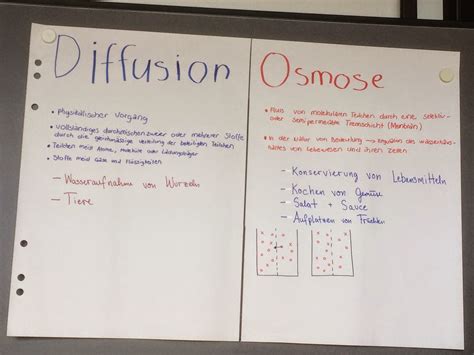 Diffusion
• physikalischer Vorgang
• vollständiges durchmischen zweier oder mehrerer Stoffe
durch die gleichmässige verteilung der beteiligten Teilchen
• Teilchen meist Atome, Moleküle oder Ladungsträger
• Stoffe meist Gase und Flüssigkeiten
– Wasseraufnahme von Wurzeln
– Tiere
Osmose
• Fluss von molekularen Teilchen durch eine selektiv-
oder semipermeable Trennschicht (Membran)
• In der Natur von Bedeutung → Regulation des wasserhaus-
haltes von Lebewesen und ihren Zellen
– Konservierung von Lebensmitteln
– Kochen von Gemüse
– Salat + Sauce
– Aufplatzen von Früchten